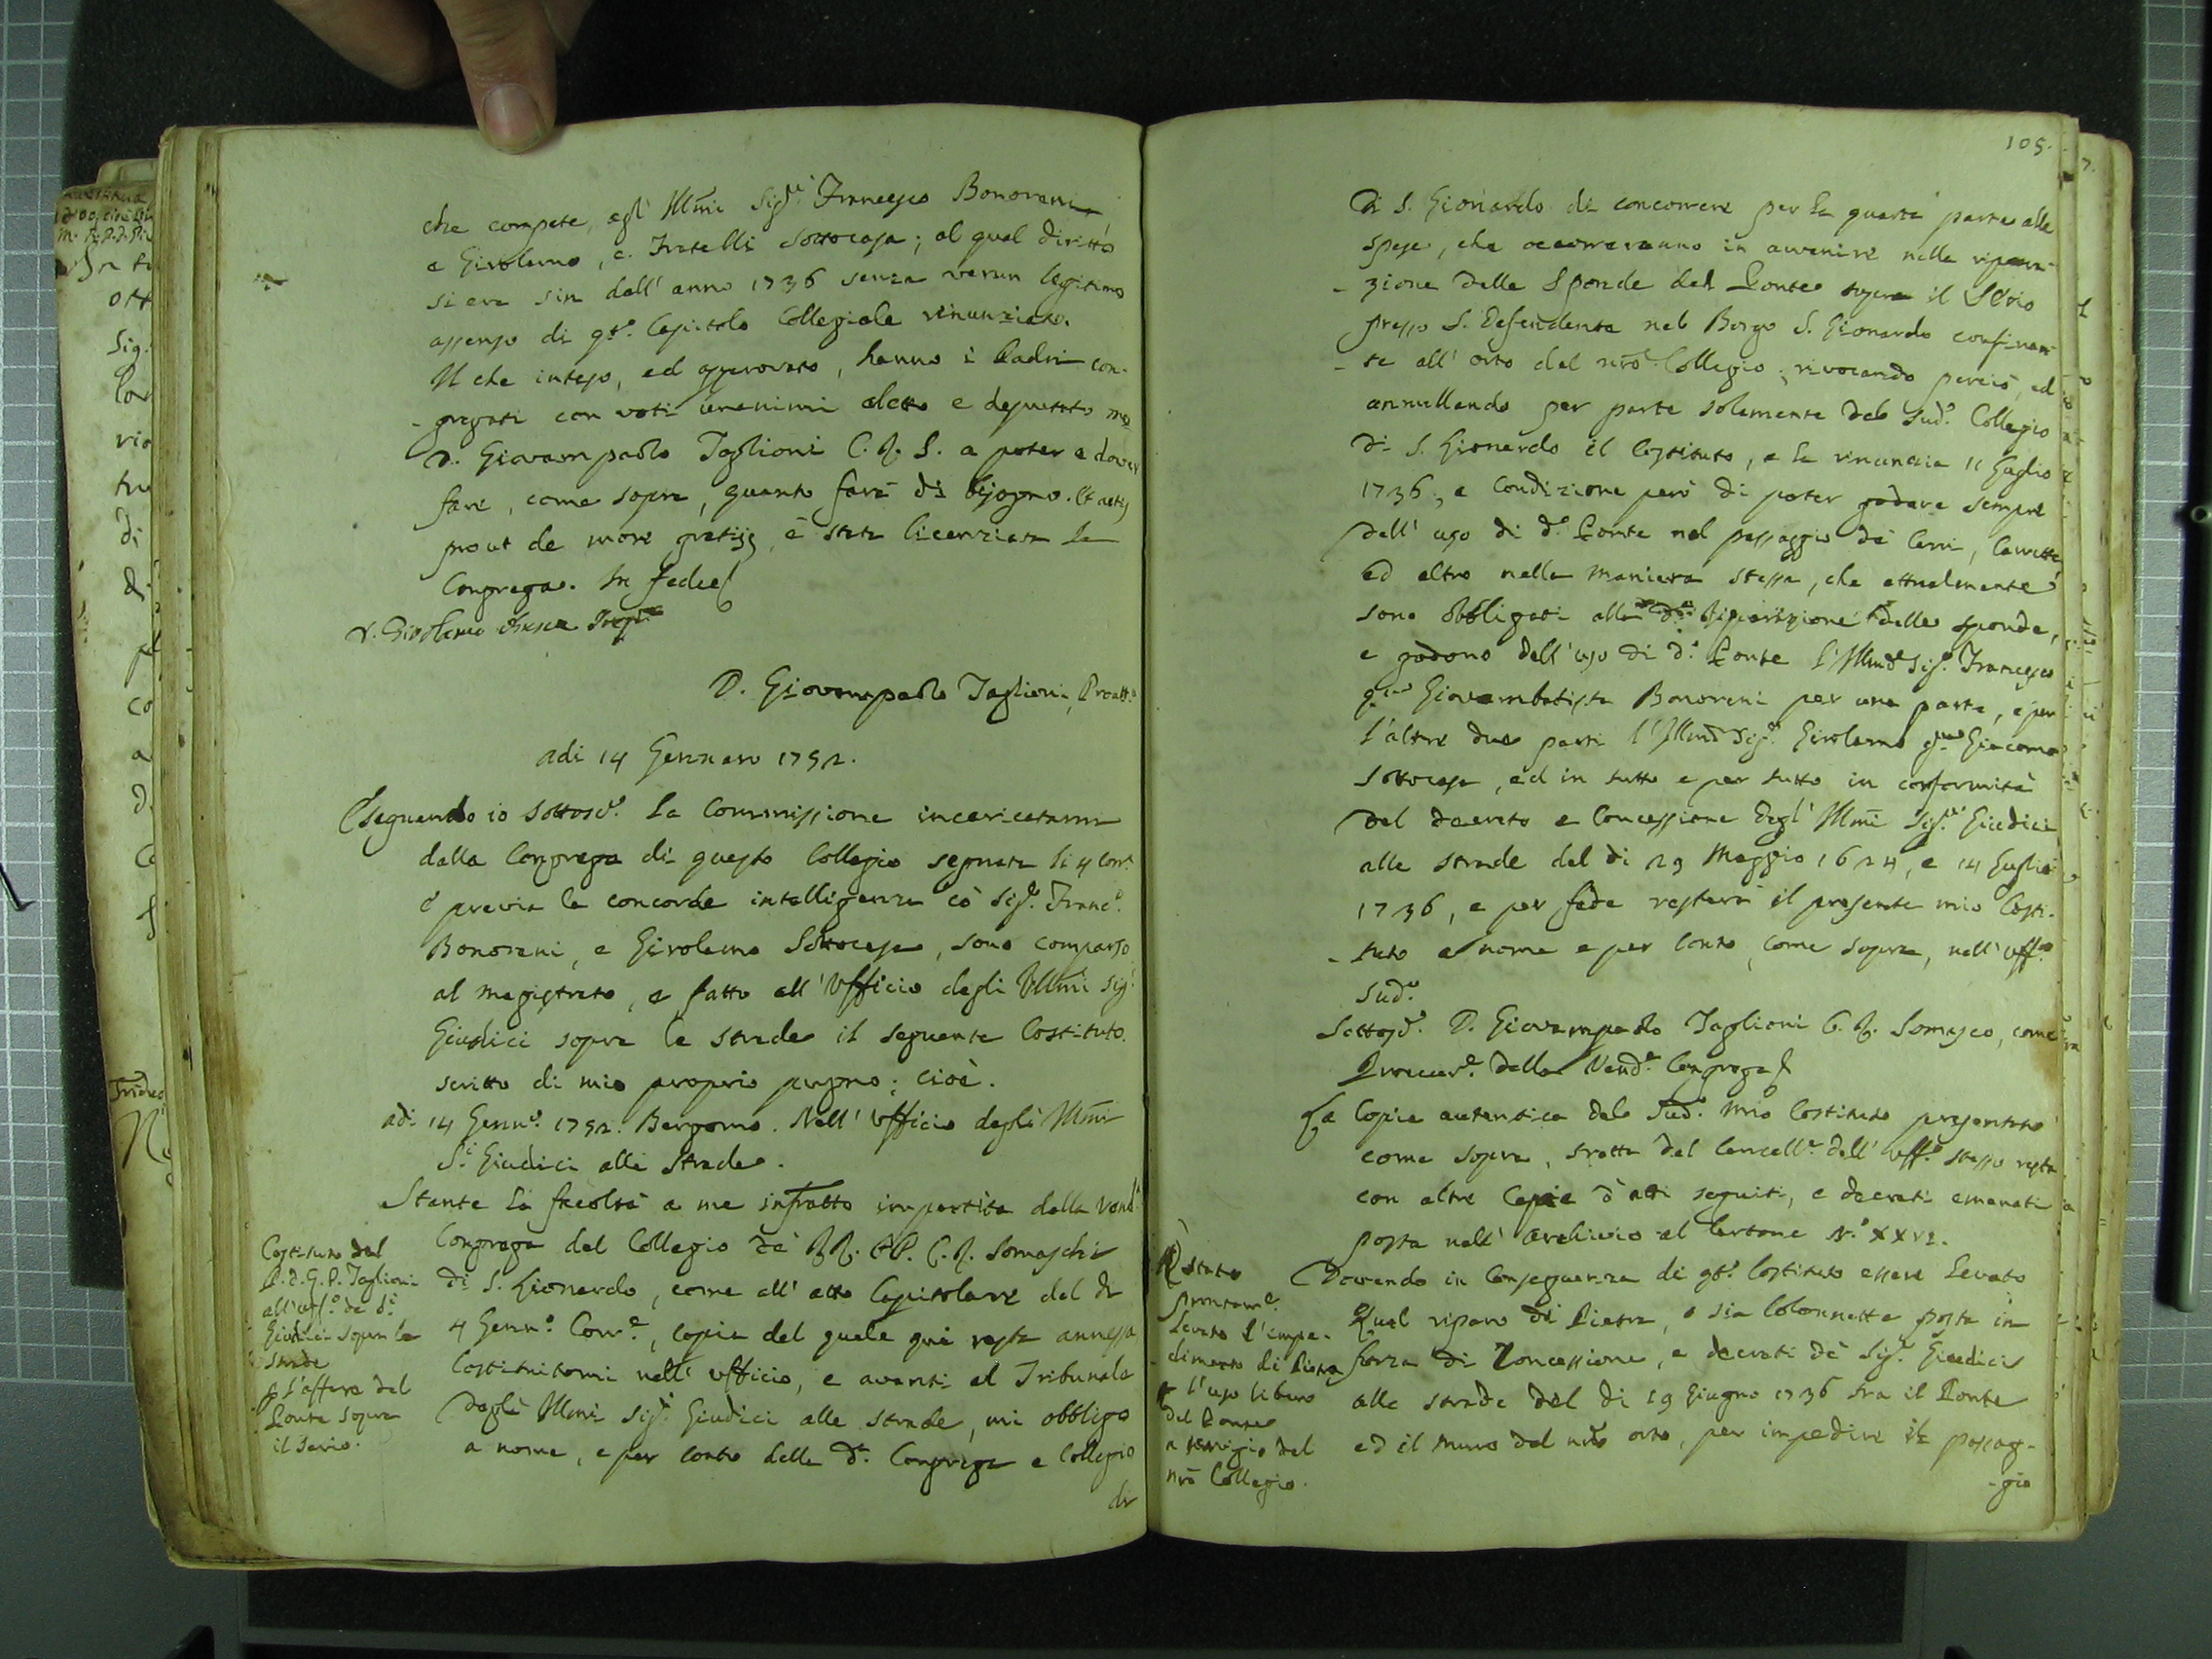 che compete agl' Illmi Sigri Francesco Bonoreni
e Girolamo, e Fratelli Sottocasa; al qual diritto
si era sin dall' anno 1736 senza verun legitimo
assenso di qto. Capitolo Collegiale rinunziato.
Il che inteso, ed approvato, hanno i Padri con-
-gregati con voti unanimi eletto e deputato me
D. Giovampaolo Taglioni C. R. S. a poter e dover
fare, come sopra, quanto farà di bisogno. Et actis
prout de more gratijs, è stata licenziata la
Congrega. In fede
D. Girolamo
D. Giovampaolo Taglioni, Proatt.o
adi 14 Gennaro 1752.
Eseguendo io sottoso. la Commissione incaricatami
dalla Congrega di questo Collegio segnata li 4 corr.
e previa la concorde intelligenza cò Sigi. Franco.
Bonoreni, e Girolamo Sottocasa, sono comparso
al magistrato, e fatto all' Ufficio degli Illmi Sigi.
Giudici sopra le strade il seguente Costituto.
scritto di mio proprio pugno; cioè.
adi 14 Genno. 1752. Bergomo. Nell' Ufficio degli Illmi
Si. Giudici alle Strade.
Stante la facoltà a me infratto impartita dalla Vend.
Congrega del Collegio dè RR. PP. C. R. Somaschi
di S. Lionardo, come all' atto Capitolare del dì
4 Genno. Corre., copia del quale quì resta annessa
Costituitomi nell' ufficio, e avanti al Tribunale
degli Illmi Sigi. Giudici alle strade, mi obbligo
a nome, e per conto della da. Congrega e Collegio
di
Costituto del
P. D. G. P. Taglioni
all' uffo. dè Si.
Giudici sopra le
strade
p l'affare del
Ponte sopra
il Serio.
105.
di S. Lionardo di concorrere per la quarta parte alle
spese, che occorreranno in avvenire nella ripara-
-zione delle Sponde del Ponte sopra il Serio
presso S. Defendente nel Borgo S. Lionardo confinan-
-te all' orto del nro Collegio; rivocando perciò, ed
annullando per parte solamente del sudo. Collegio
di S. Lionardo il Costituto, e la rinuncia 11 Luglio
1736, a condizione però di poter godere sempre
dell' uso di do. Ponte nel passaggio dè Carri, Carrette,
ed altro nella maniera stessa, che attualmente
sono obbligati alla da. riparazione delle sponde,
e godono dell' uso di do. Ponte l'Illmo Sigr. Francesco
qm Giovambatista Bonoreni per una parte, e per
l'altre due parti l'Illmo Sigr. Girolamo qm Giacomo
Sottocasa, ed in tutto e per tutto in conformità
del decreto e Concessione degl' Illmi Sigri Giudici
alle strade del dì 29 Maggio 1624, e 14 Luglio
1736, e per fede resterà il presente mio Costi-
-tuto a nome e per conto, come sopra, nell' Uffo.
sudo.
Sottoso. D. Giovampaolo Taglioni C. R. Somasco, come
Procure. della Venda. Congrega
La Copia autentica del sudo. mio Costituto presentato
come sopra, tratta dal Cancelle. dell' Uffo. stesso resta
con altre Copie d' atti seguiti, e decreti emanati
posta nell' archivio al Cartone No. XXVI.
Dovendo in Conseguenza di qto. Costituto essere levato
Qual riparo di Pietra, o sia Colonnetta posta in
forza di Concessione, e decreti dè Sigi. Giudici
alle strade del dì 19 Giugno 1736 tra il Ponte
ed il muro del nro orto, per impedire il passag-
-gio
È stato
prontame.
levato l'impe-
dimento di Pietra
p l'uso libero
del Ponte
a servigio del
nro Collegio.